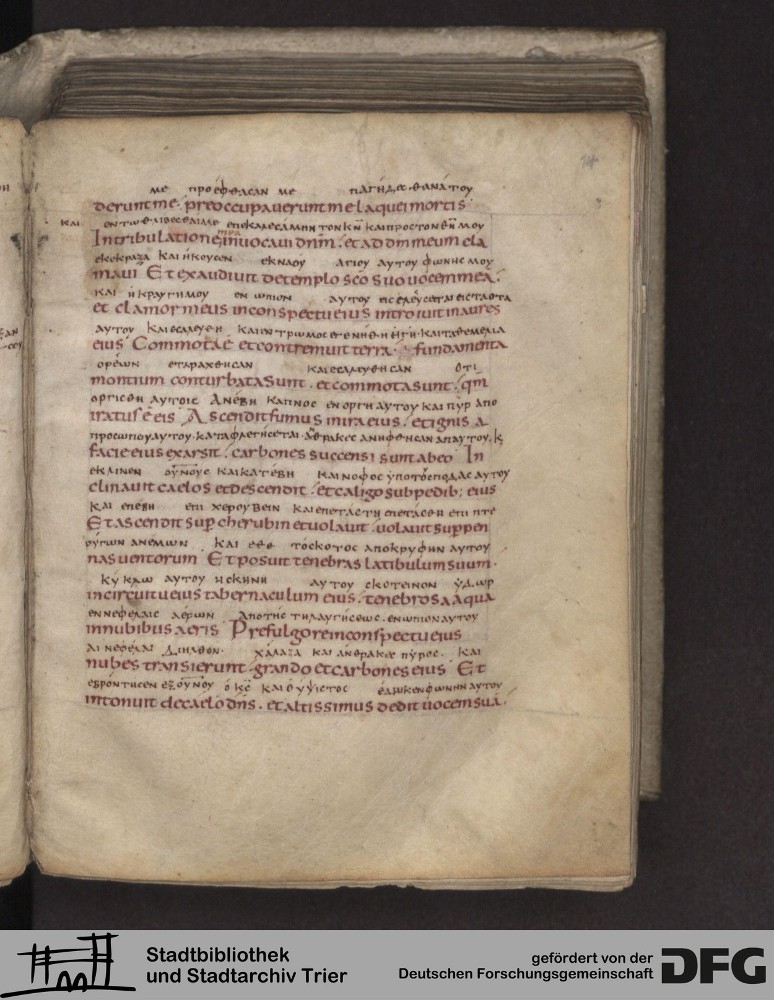 με προέφθασαν με παγήδεσ θανάτου
deruntme. preoccupaverunt me laquei mortis.
και εν τω θλιβεσθαι με επεκαλεσαμην τον κ̅ν̅ και προς τον θ̅ν̅ μου
In tribulatione mea invocavi dnm. et ad dm meum cla
εκεκραξα και ήκουσεν εκ ναου αγιου αυτου φωνης μου
mavi Et exaudivit de templo sco suo vocem mea.
και η κραυγη μου ενωπιον αυτου εισελευσεται εις τα ωτα
et clamor meus in conspectu eius introivit in aures
αυτου και εσαλευθη και εντρωμος εγενήθη η γη και τα θεμελια
eius Commota e et contremuit terra. fundamenta
ορέων εταραχθησαν και εσαλευθησαν ότι
montium conturbata sunt. et commota sunt. qm
οργισθη αυτοις Ανέβη καπνος εν οργη αυτου και πυρ απο
iratus e eis Ascendit fumus in ira eius. et ignis a
προσωπου αυτου. καταφλεγήσεται. άνθρακες ανηφθησαν απ αυτου. κ
facie eius exarsit. carbones succensi sunt ab eo In
εκλινεν ουνους και κατέβη και νοφος υπο τους ποδας αυτου
clinavit caelos et descendit. et caligo sub pedib; eius
και επεβη επι χερουβειν και επετασθη επετασθη επι πτε
Et ascendit sup cherubin et volavit. volavit super pen
ρύγων ανεμων. και εθε το σκοτος αποκρυφην αυτου
nas ventorum Et posuit tenebras latibulum suum.
κύκλω αυτου η σκηνη αυτου σκοτεινον ύδωρ
in circuitu eius tabernaculum eius. tenebrosa aqua
εν νεφελαις αέρων Απο της τηλαυγησεως. ενωπιον αυτου
in nubibus aeris Prefulgore in conspectu eius
αι νεφελαι διηλθον. χαλαζα και άνθρακες πυρος. και
nubes transierunt. grando et carbones eius Et
εβρόντησεν εξ ουνου ό κ̅ς̅ και ο υψιστος έδωκεν φωνην αυτου
intonuit de caelo dns. et altissimus dedit vocem sua.
Stadtbibliothek
und Stadtarchiv Trier
gefördert von der
Deutschen Forschungsgemeinschaft
DFG